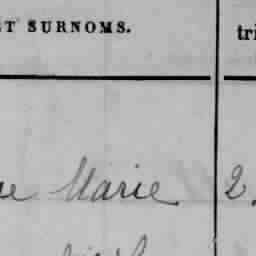 ET SURNOMS. tri
ne Marie 2.